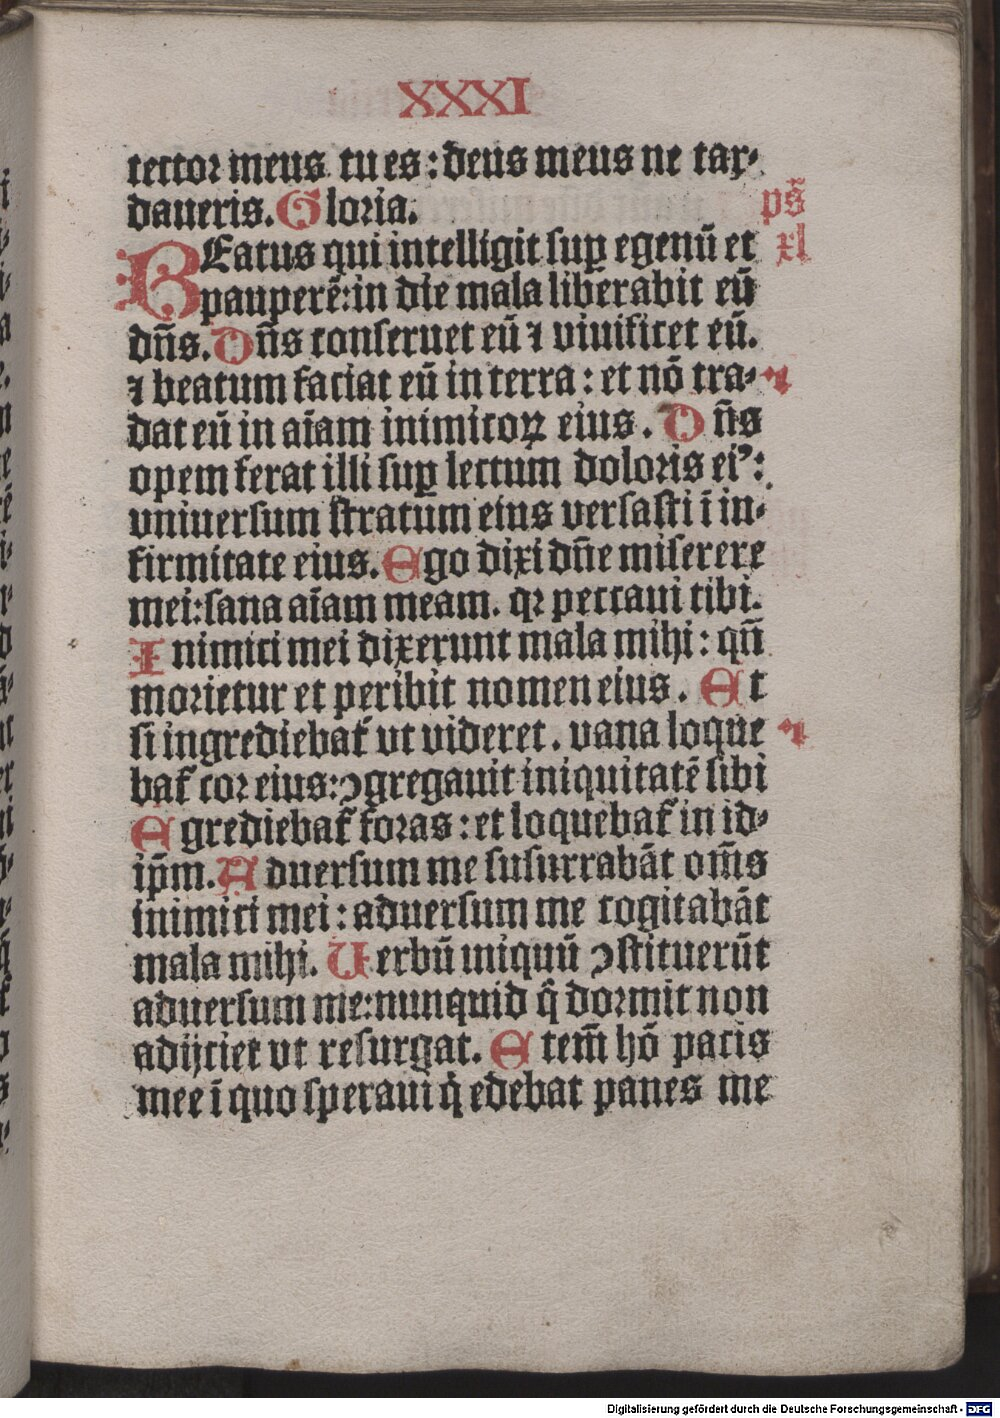 XXXI
tector meus tu es: deus meus ne tar⸗
daueris. Gloria.
pẜ
BEatus qui intelligit suꝑ egenū et
xl
pauperē: in die mala liberabit eū
dn̄s. Dn̄s conseruet eū ⁊ viuificet eū.
⁊ beatum faciat eū in terra: et nō tra⸗
dat eū in aīam inimicoꝝ eius. Dn̄s
opem ferat illi suꝑ lectum doloris eiꝰ:
vniuersum stratum eius versasti ī in⸗
firmitate eius. Ego dixi dn̄e miserere
mei: sana aīam meam. qꝛ peccaui tibi.
Inimici mei dixerunt mala mihi: qn̄
morietur et peribit nomen eius. Et
si ingrediebat᷑ vt videret. vana loque
bat᷑ cor eius: ꝯgregauit iniquitatē sibi
Egrediebat᷑ foras: et loquebat᷑ in id⸗
ip̄m. Aduersum me susurrabāt om̄s
inimici mei: aduersum me cogitabāt
mala mihi. Uerbū iniquū ꝯstituerūt
aduersum me: nunquid q̄ dormit non
adijciet vt resurgat. Etem̄ hō pacis
mee ī quo speraui q̇ edebat panes me
Digitalisierung gefördert durch die Deutsche Forschungsgemeinschaft - DFG